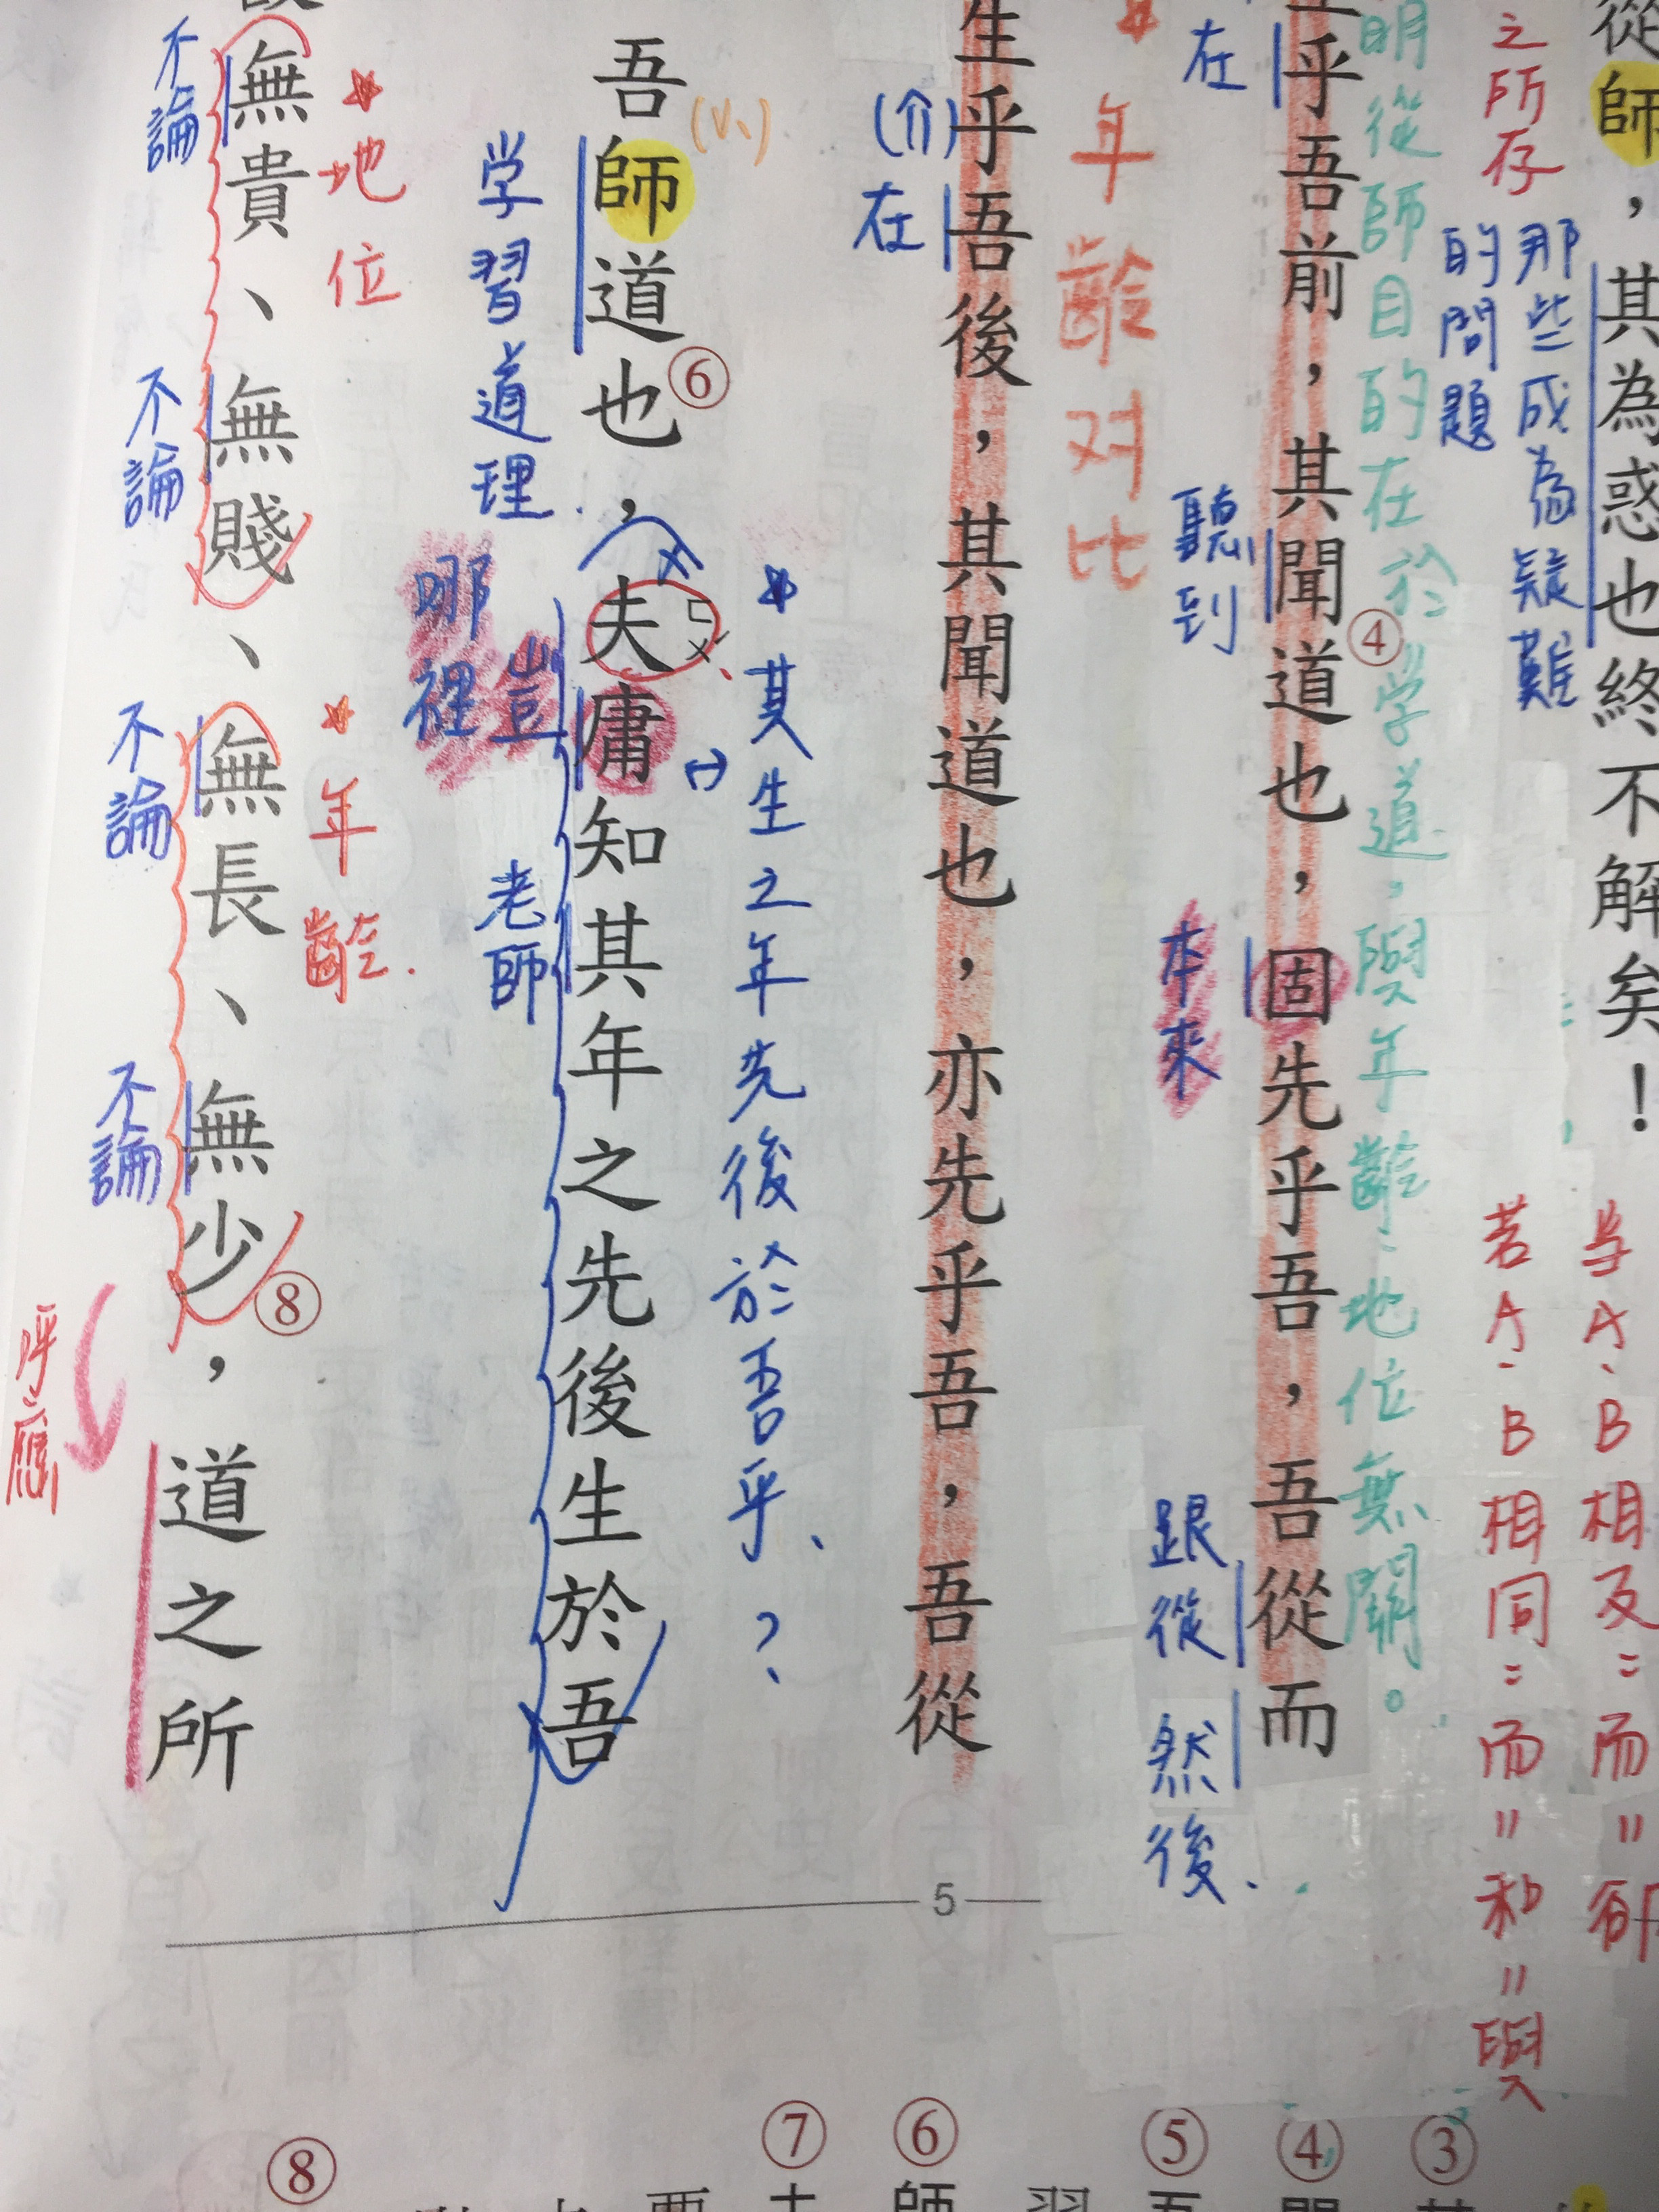 從師，其為惑也終不解矣！
之所存
那些成為疑難
的問題
若A、B相同=而=和=與
A、B相反=而=卻
明從師目的在於学道，與年齡、地位無關。
乎吾前，其聞道也，固先乎吾，吾從而
④
在
聽到
本來
跟從
然後
年齡对比
生乎吾後，其聞道也，亦先乎吾，吾從
(介)
在
吾師道也，夫庸知其年之先後生於吾
⑥
ㄈㄨˊ
其生之年先後於吾乎？
学習道理
豈
哪裡
老師
無貴、無賤、無長、無少，道之所
⑧
地位
年齡
不論
不論
不論
不論
呼應
5
③
④
⑤
⑥
師
⑦
⑧